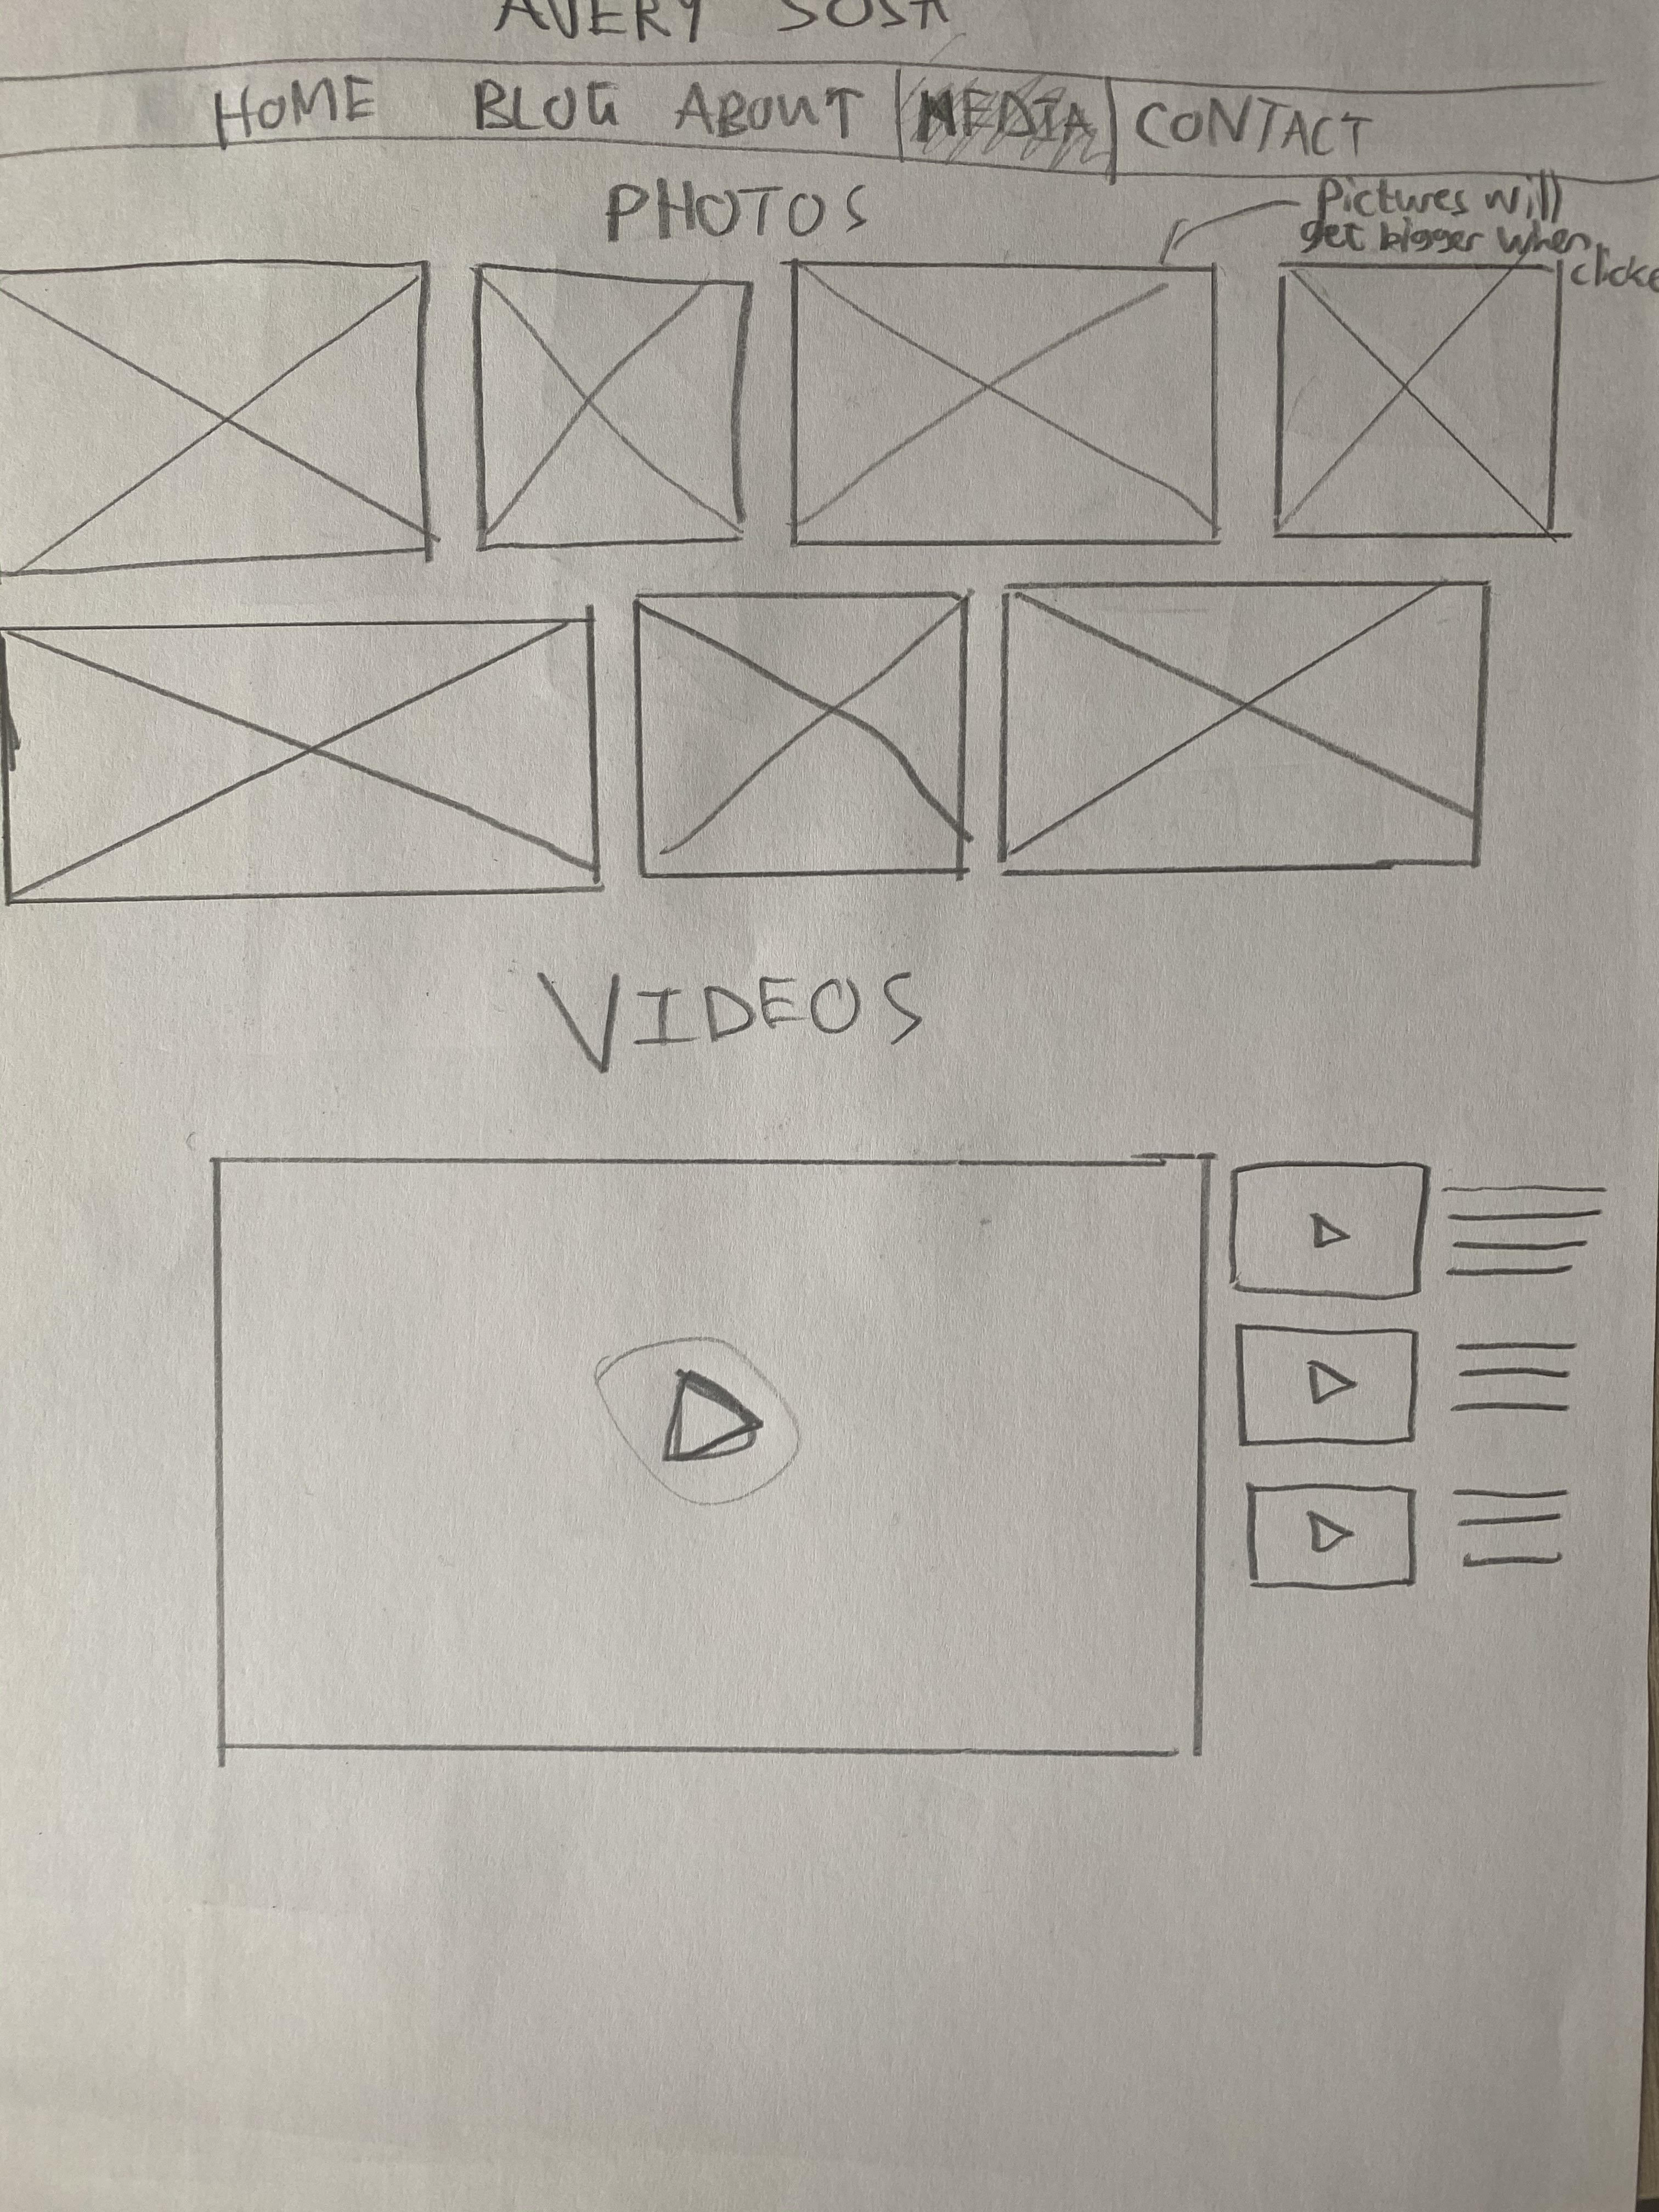 AVERY SOSA
HOME BLOG ABOUT MEDIA CONTACT
PHOTOS
Pictures will
get bigger when
clicke
VIDEOS